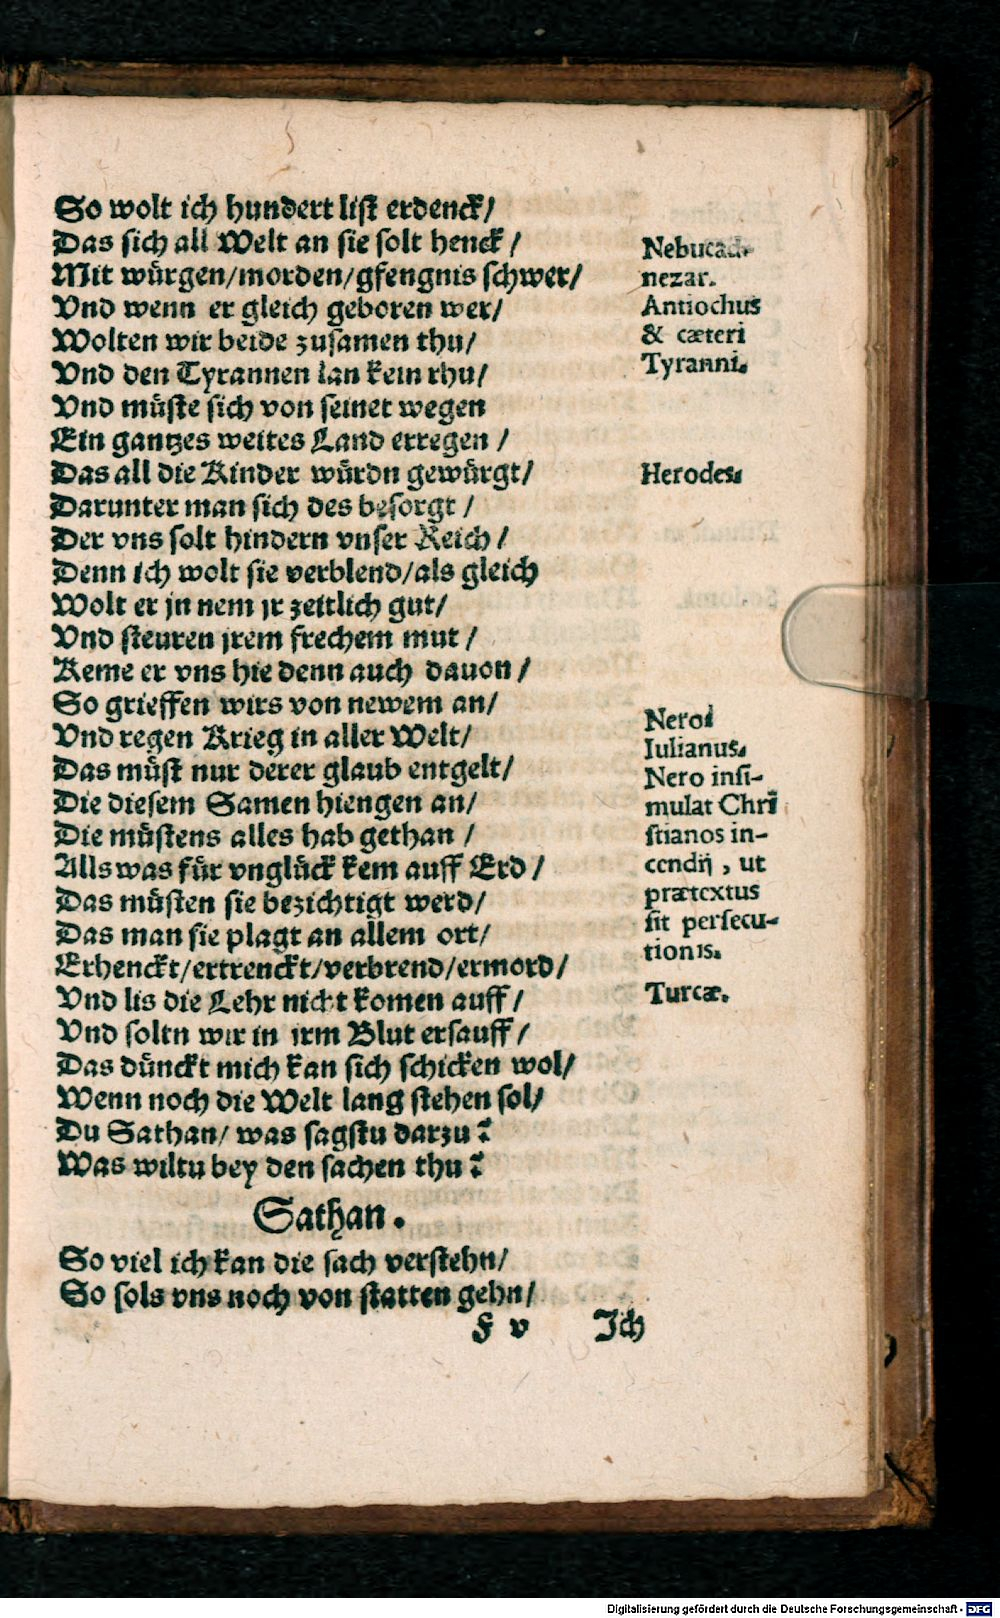 So wolt ich hundert list erdenck/
Das sich all Welt an sie solt henck /
Mit würgen/morden/gfengnis schwer/
Vnd wenn er gleich geboren wer/
Wolten wir beide zusamen thu/
Vnd den Tyrannen lan kein rhu/
Vnd müste sich von seinet wegen
Ein gantzes weites Land erregen /
Das all die Kinder würdn gewürgt/
Darunter man sich des besorgt /
Der vns solt hindern vnser Reich /
Denn ich wolt sie verblend/als gleich
Wolt er jn nem jr zeitlich gut/
Vnd steuren jrem frechem mut /
Keme er vns hie denn auch dauon /
So grieffen wirs von newem an/
Vnd regen Krieg in aller Welt/
Das müst nur derer glaub entgelt/
Die diesem Samen hiengen an/
Die müstens alles hab gethan /
Alls was für vnglück kem auff Erd /
Das müsten sie bezichtigt werd/
Das man sie plagt an allem ort/
Erhenckt/ertrenckt/verbrend/ermord/
Vnd lis die Lehr nicht komen auff /
Vnd soltn wir in jrm Blut ersauff /
Das dünckt mich kan sich schicken wol/
Wenn noch die Welt lang stehen sol/
Du Sathan/ was sagstu darzu?
Was wiltu bey den sachen thu?
Sathan.
So viel ich kan die sach verstehn/
So sols vns noch von statten gehn/
F v Ich
Nebucad-
nezar.
Antiochus
& cæteri
Tyranni.
Herodes.
Nero
Iulianus.
Nero insi-
mulat Chri
stianos in-
cendij , ut
prætextus
sit persecu-
tionis.
Turcæ.
Digitalisierung gefördert durch die Deutsche Forschungsgemeinschaft - DFG